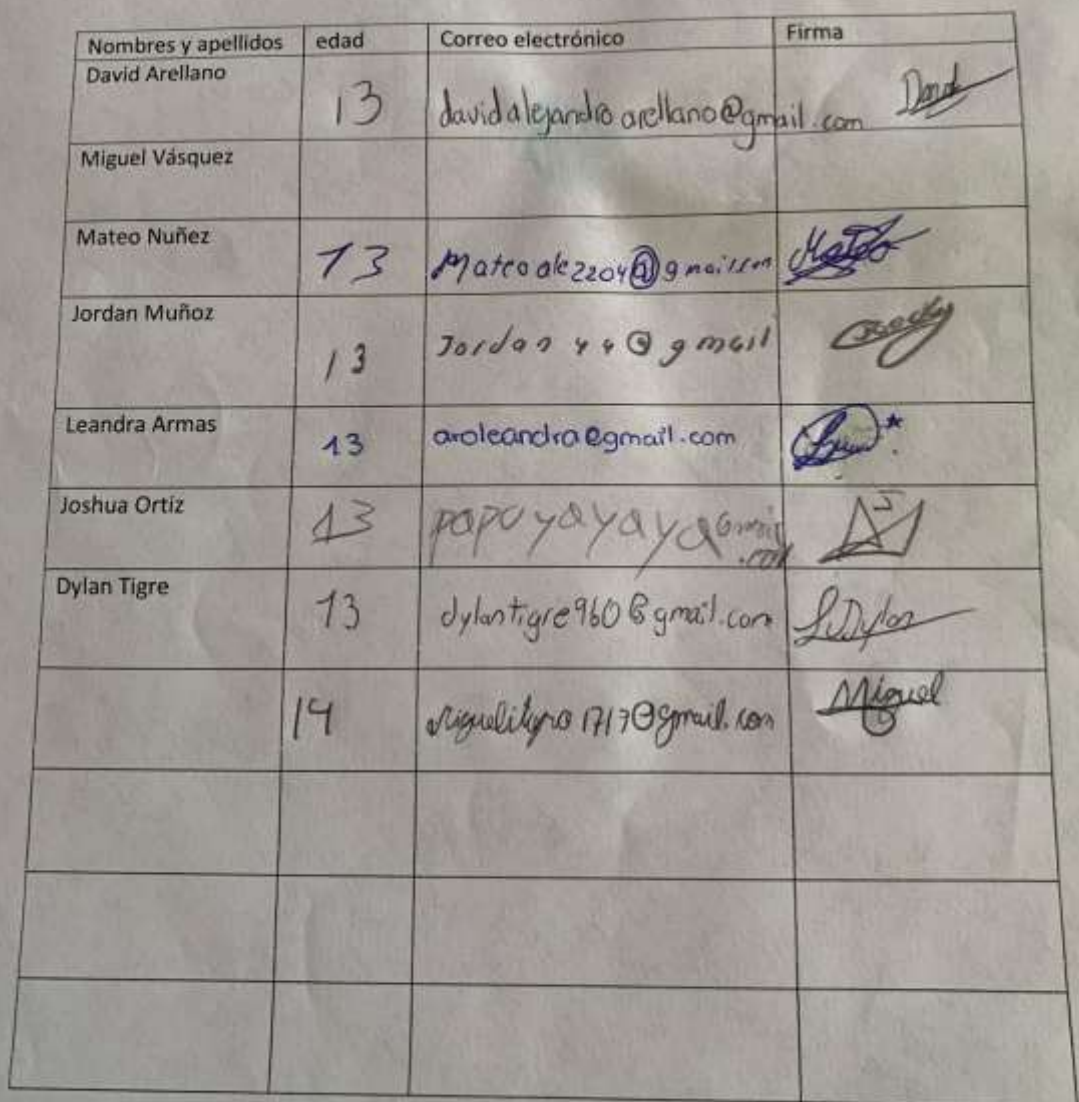 Nombres y apellidos edad Correo electrónico Firma
David Arellano 13 davidalejandroarellano@gmail.com David
Miguel Vásquez
Mateo Nuñez 13 Mateoale2204@gmail.com Mateo
Jordan Muñoz 13 Jordan 44@gmail
Leandra Armas 13 aroleandra@gmail.com
Joshua Ortiz 13 papuyayaya Gmail
.com
Dylan Tigre 13 dylantigre960@gmail.com Dylan
14 1717@gmail.com Miguel